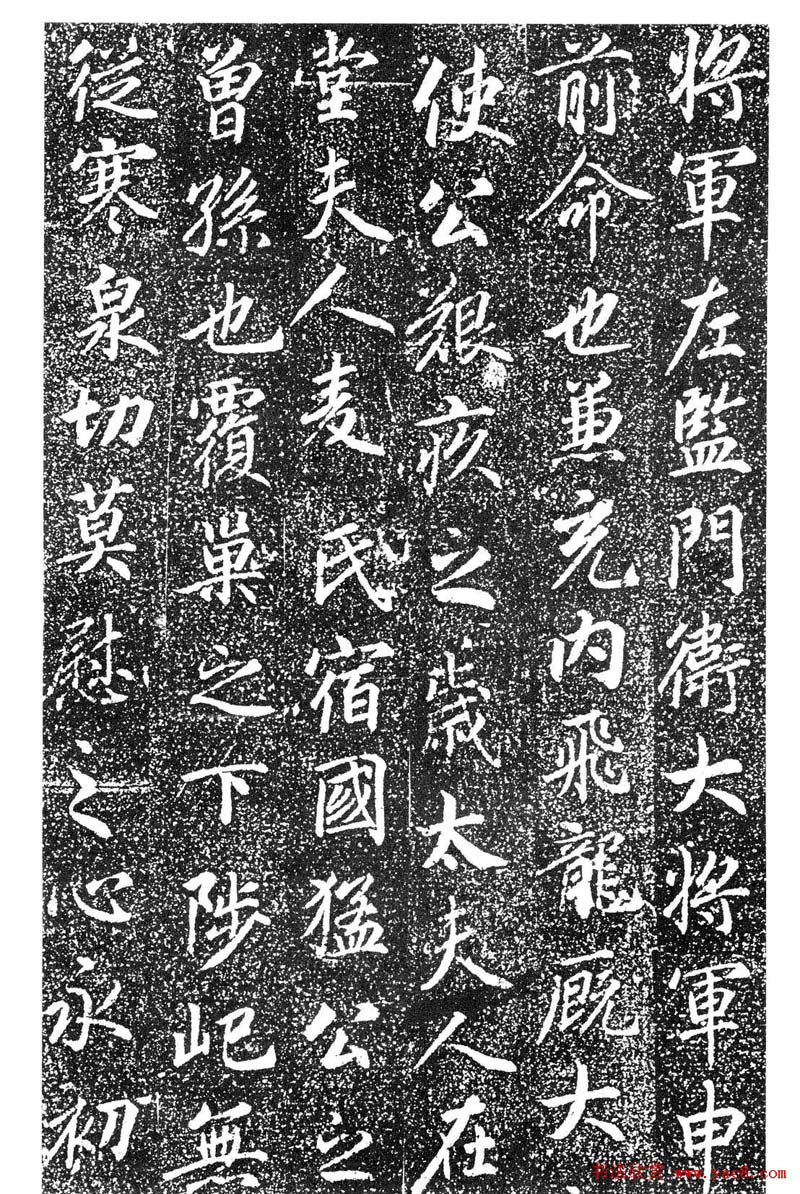 將軍左監門衛大將軍申
前命也兼充内飛龍厩大
使公艱疚之歲太夫人在
堂夫人麦氏宿國猛公之
曾孫也覆巢之下陟屺無
從寒泉切莫慰之心永初
书法欣赏 www.yac8.com